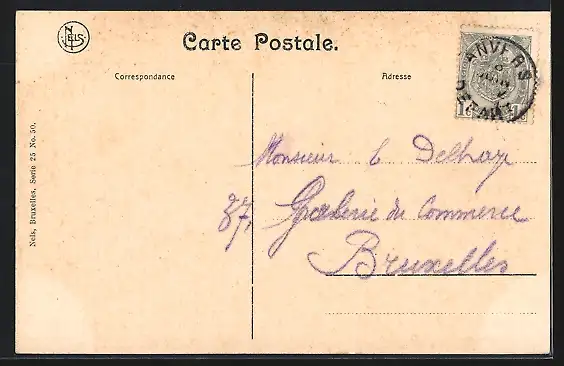 NELS
Carte Postale.
Correspondance
Adresse
ANVERS
DEPART
1c
Nels, Bruxelles, Serie 25 No. 50.
Monsieur E Delhay
37, Galerie du Commerce
Bruxelles